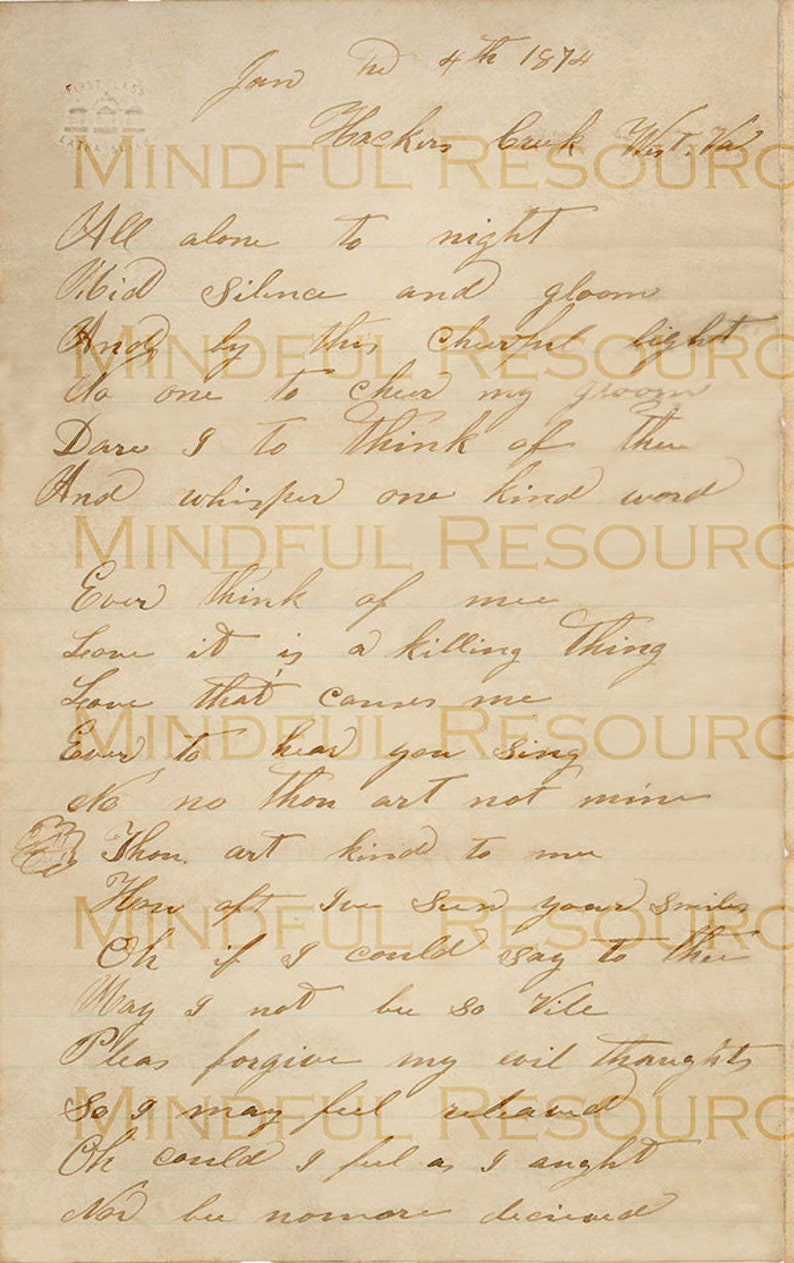 Jan the 4th 1874
Hackers Creek West. Va
MINDFUL RESOURC
All alone to night
Mid Silence and gloom
And by this cheerful light
MINDFUL RESOURC
No one to cheer my groom
Dare I to think of thee
And whisper one kind word
MINDFUL RESOURC
Ever think of mee
Love it is a killing thing
Love that causes me
MINDFUL RESOURC
Ever to hear you sing
No no thou art not mine
Thou art kind to me
How oft Ive seen your smiles
MINDFUL RESOURC
Oh if I could say to thee
May I not bee so Vile
Pleas forgive my evil thaughts
So I may feel releaved
MINDFUL RESOURC
Oh could I feel as I aught
Nor bee nomore decieved